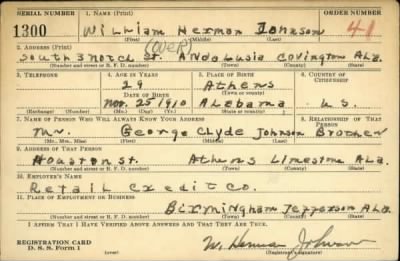 SERIAL NUMBER 1. NAME (Print) ORDER NUMBER
1300 William Herman Johnson 41
(First) (Middle) (Last)
2. ADDRESS (Print) (over)
South 3 Notch St. Andalusia Covington Ala.
(Number and street or R. F. D. number) (Town) (County) (State)
3. TELEPHONE 4. AGE IN YEARS 5. PLACE OF BIRTH 6. COUNTRY OF CITIZENSHIP
29 Athens
(Town or county)
DATE OF BIRTH
Nov. 25 1910 Alabama U.S.
(Exchange) (Number) (Mo.) (Day) (Yr.) (State or country)
7. NAME OF PERSON WHO WILL ALWAYS KNOW YOUR ADDRESS 8. RELATIONSHIP OF THAT PERSON
Mr. George Clyde Johnson Brother
(Mr., Mrs., Miss) (First) (Middle) (Last)
9. ADDRESS OF THAT PERSON
Houston St. Athens Limestone Ala.
(Number and street or R. F. D. number) (Town) (County) (State)
10. EMPLOYER'S NAME
Retail Credit Co.
11. PLACE OF EMPLOYMENT OR BUSINESS
Birmingham Jefferson Ala.
(Number and street or R. F. D. number) (Town) (County) (State)
I AFFIRM THAT I HAVE VERIFIED ABOVE ANSWERS AND THAT THEY ARE TRUE.
REGISTRATION CARD
D. S. S. Form 1
(over) W. Herman Johnson
(Registrant's signature)